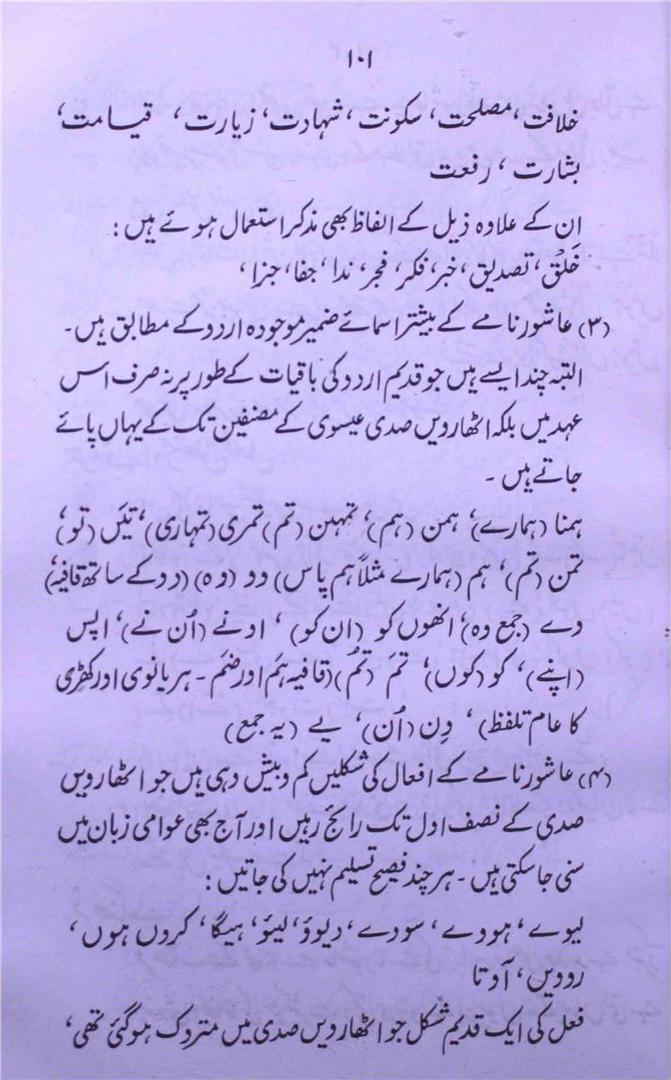 ۱۰۱
خلافت، مصلحت، سکونت، شہادت، زیارت، قیامت،
بشارت، رفعت
ان کے علاوہ ذیل کے الفاظ بھی مذکر استعمال ہوئے ہیں:
خَلق، تصدیق، خبر، فکر، فجر، ندا، جفا، جزا،
(۳) عاشور نامے کے بیشتر اسمائے ضمیر موجودہ اردو کے مطابق ہیں۔
البتہ چند ایسے ہیں جو قدیم اردو کی باقیات کے طور پر نہ صرف اس
عہد میں بلکہ اٹھارویں صدی عیسوی کے مصنفین تک کے یہاں پائے
جاتے ہیں۔
ہمنا (ہمارے)، ہمن (ہم)، تمہن (تم) تمری (تمہاری)، تیَں (تو)،
تمن (تم)، ہم (ہمارے مثلاً ہم پاس) دو (وہ) (دو کے ساتھ قافیہ)،
دے (جمع وہ)، انھوں کو (ان کو)، اونے (اُن نے)، اپس
(اپنے)، کو (کوں)، تمَ (تمُ) (قافیہ ہَم اور ضَم۔ ہریانوی اور کھڑی
کا عام تلفظ)، دِن (اُن)، یے (یہ جمع)
(۴) عاشور نامے کے افعال کی شکلیں کم و بیش وہی ہیں جو اٹھارویں
صدی کے نصف اول تک رائج رہیں اور آج بھی عوامی زبان میں
سنی جا سکتی ہیں۔ ہر چند فصیح تسلیم نہیں کی جاتیں:
لیوے، ہووے، سووے، دیوؤ، لیئو، ہیگا، کروں ہوں،
روویں، آوتا
فعل کی ایک قدیم شکل جو اٹھارویں صدی میں متروک ہو گئی تھی،